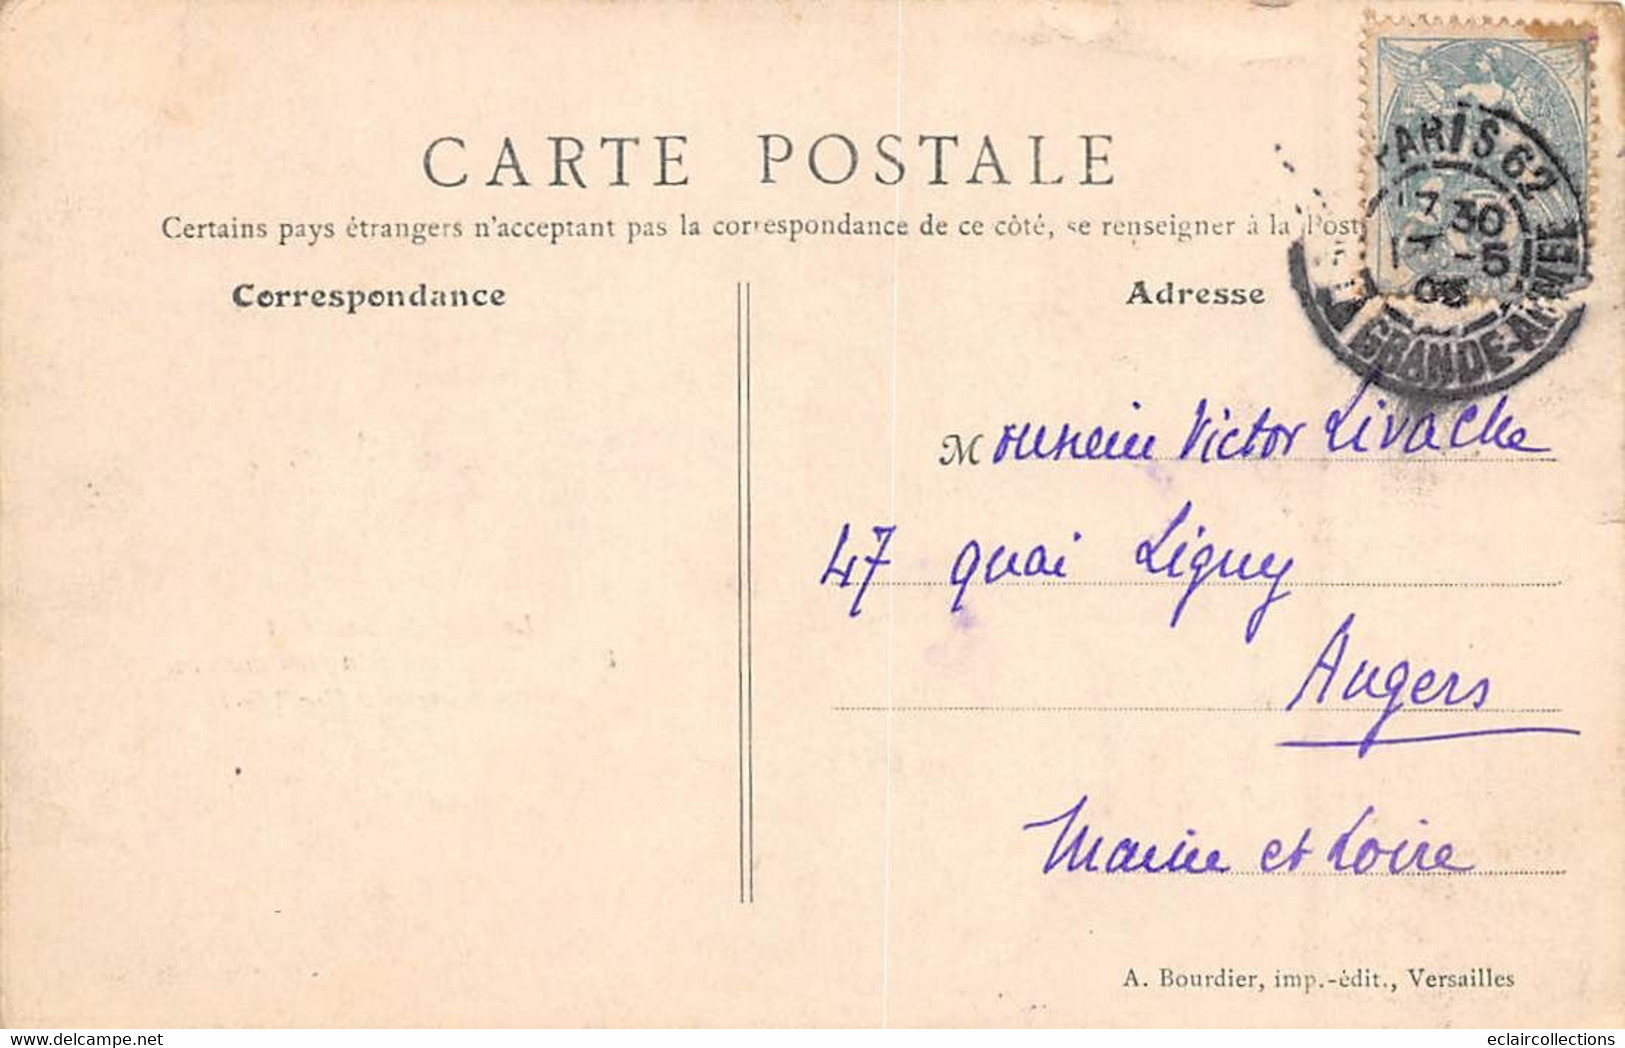 CARTE POSTALE
Certains pays étrangers n'acceptant pas la correspondance de ce côté, se renseigner à la Post
Correspondance
Adresse
PARIS 62
17 30
5
GRANDE-ARMEE
Monsieur Victor Livache
47 quai Ligny
Angers
Maine et Loire
A. Bourdier, imp.-édit., Versailles
eclaircollections